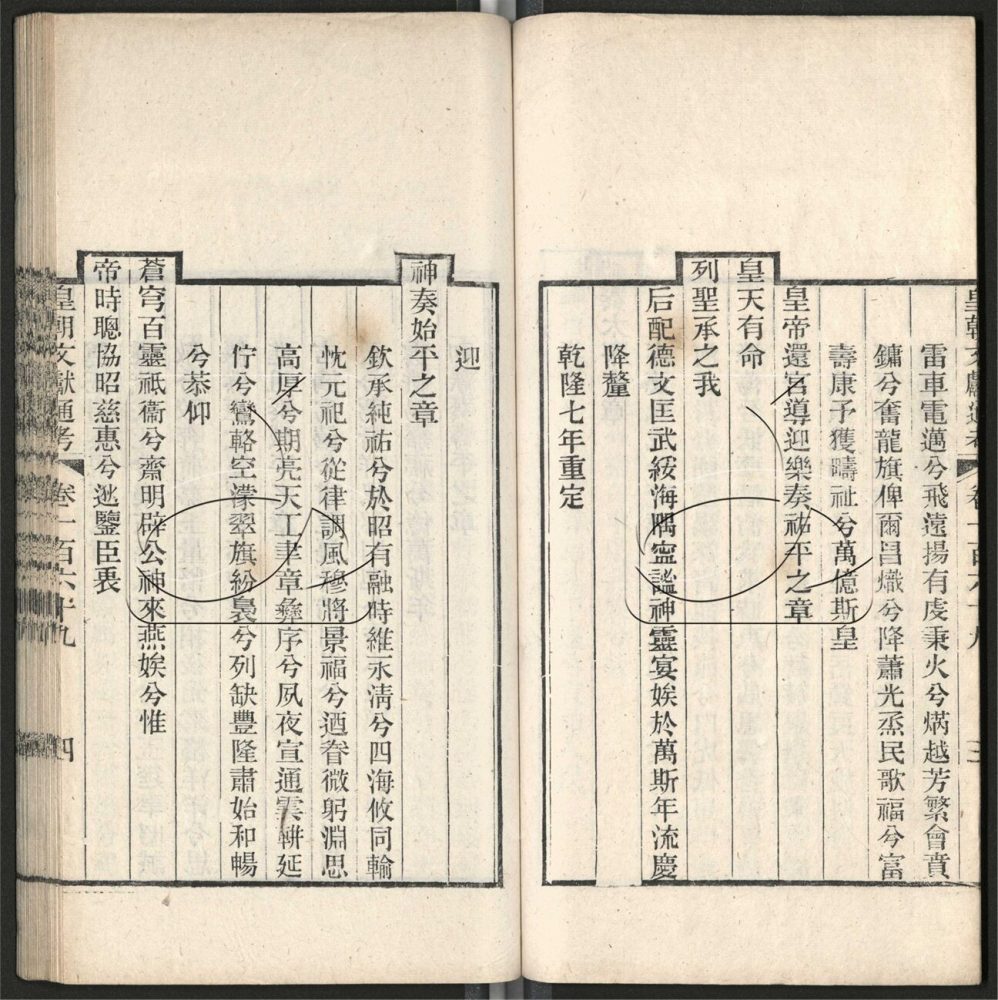 皇朝文獻通考 卷一百六十九 三
雷車電邁兮飛遠揚有虔秉火兮焫越芳繁會賁
鏞兮奮龍旗俾爾昌熾兮降蕭光烝民歌福兮富
壽康予獲疇祉兮萬億斯皇
皇帝還宮導迎樂奏祐平之章
皇天有命
列聖承之我
后配德文匡武綏海隅寍謐神靈宴娭於萬斯年流慶
降釐
乾隆七年重定
迎
神奏始平之章
欽承純祐兮於昭有融時維永淸兮四海攸同輸
忱元祀兮從律調風穆將景福兮迺眷微躬淵思
高厚兮期亮天工聿章彝序兮夙夜宣通雲輧延
佇兮鸞輅空濛翠旗紛裊兮列缺豐隆肅始和暢
兮恭仰
蒼穹百靈祗衞兮齋明辟公神來燕娭兮惟
帝時聰協昭慈惠兮逖鑒臣衷
皇朝文獻通考 卷一百六十九 四